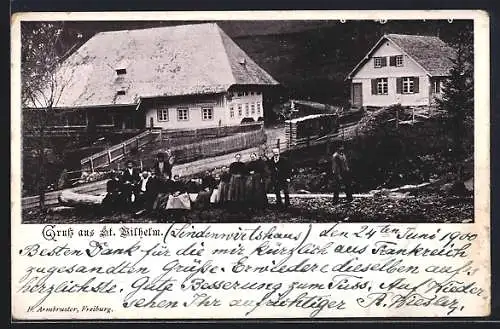 Gruß aus St. Wilhelm. (Lindenwirtshaus) den 24ten Juni 1900
Besten Dank für die mir kürzlich aus Frankreich
zugesandten Grüße. Erwiedere dieselben aufs
herzlichste. Gute Besserung zum Fuss. Auf Wieder
sehen Ihr aufrichtiger R.
W. Armbruster, Freiburg.